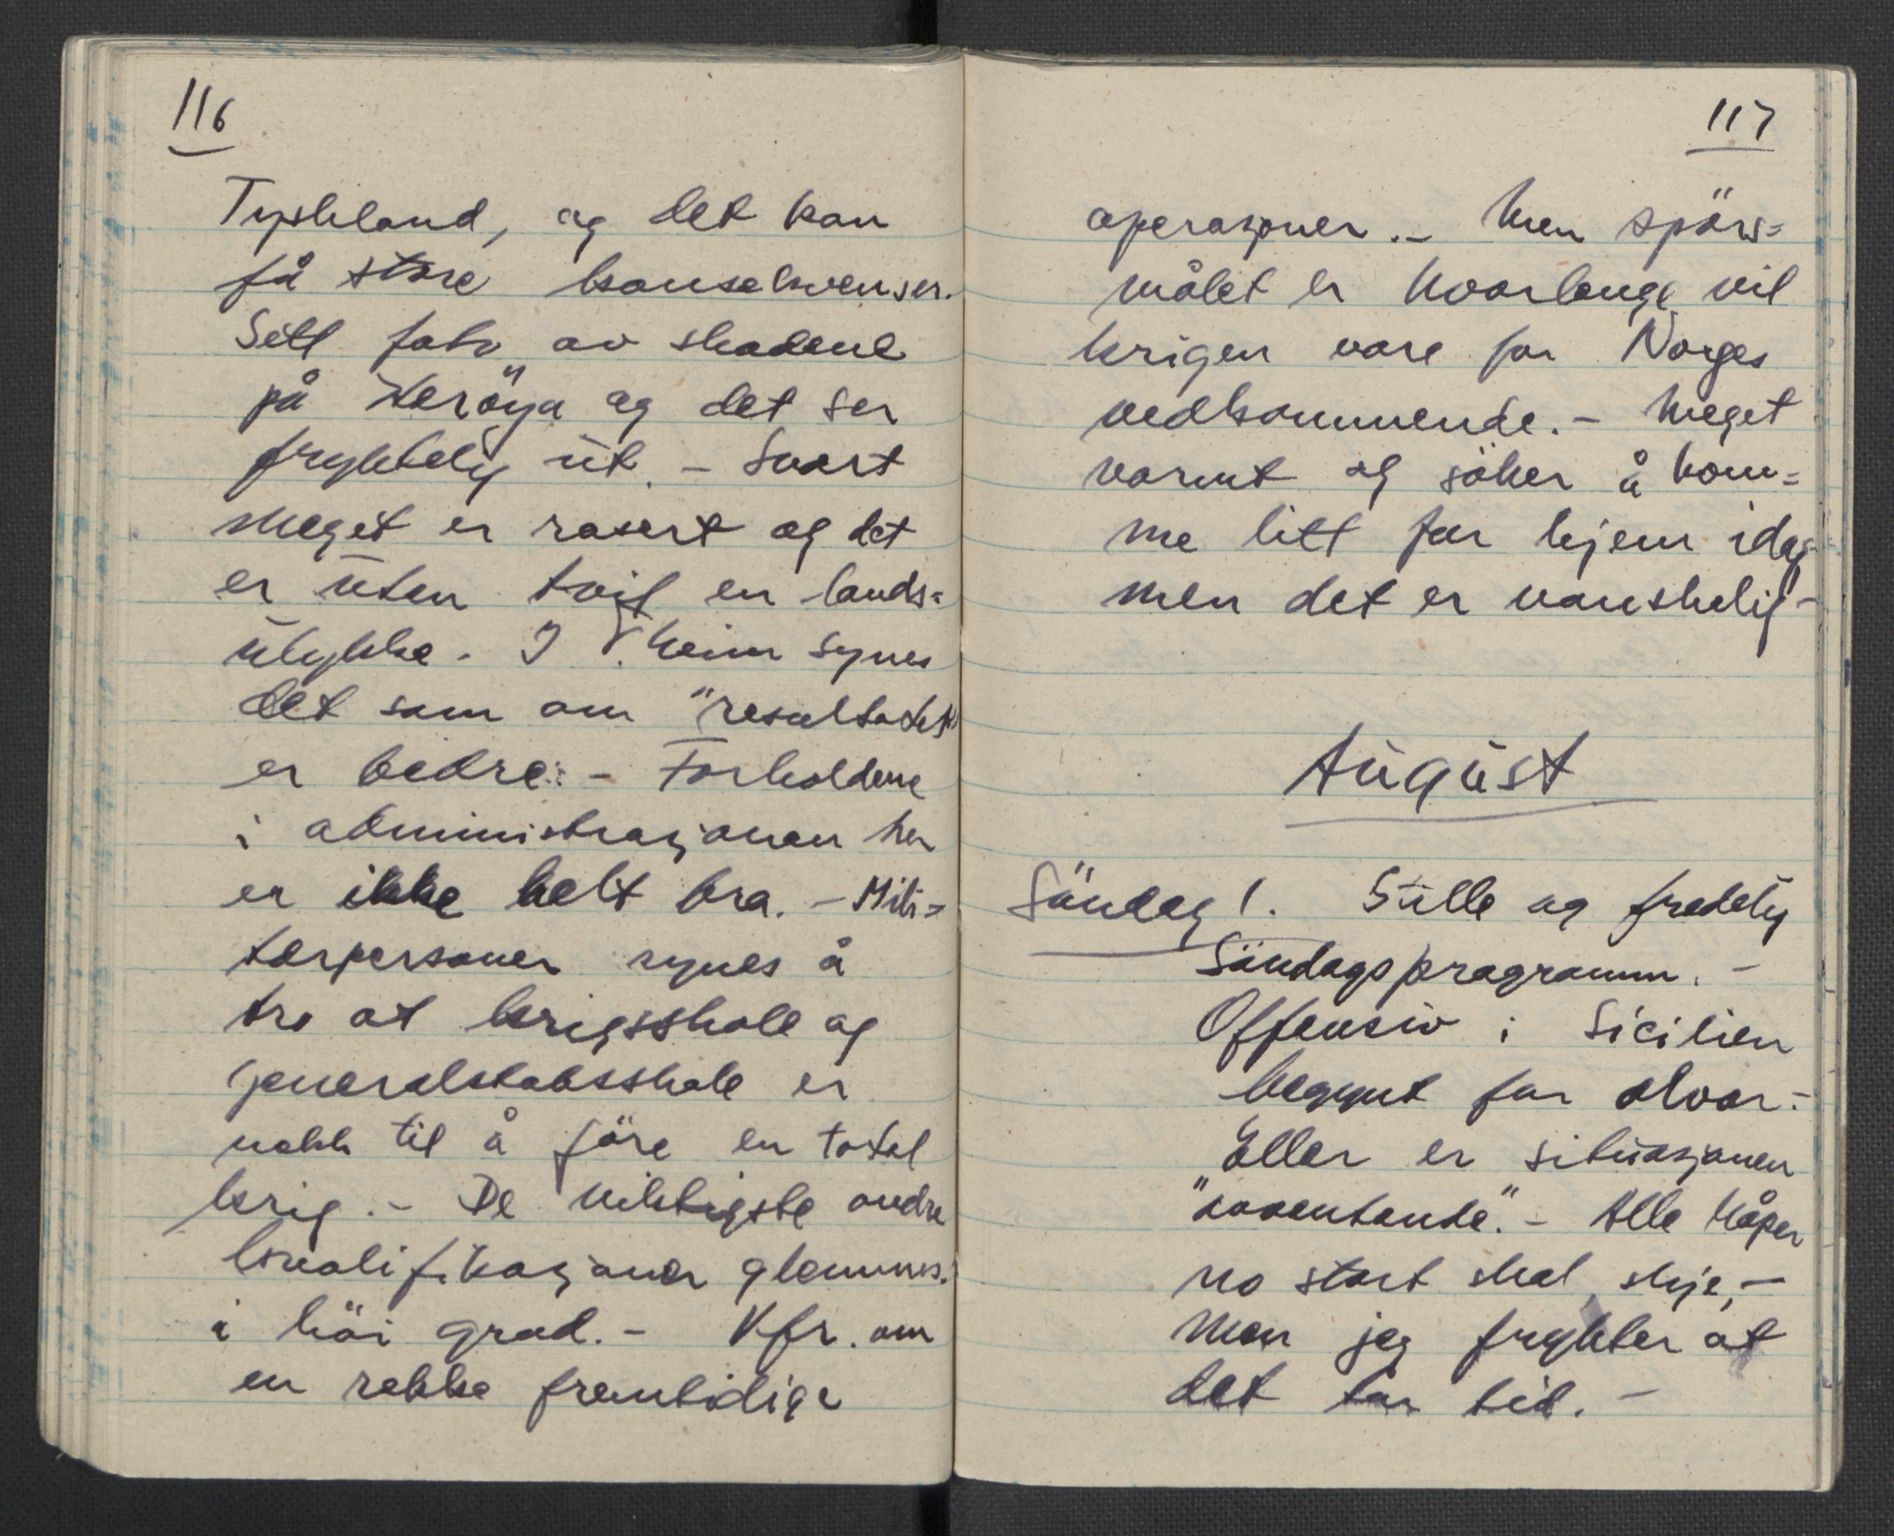 116
Tyskland, og det kan
få store konsekvenser.
Sett foto av skadene
på Heröya og det ser
fryktelig ut. - Svært
meget er rasert og det
er uten tvil en lands=
ulykke. I T.heim synes
det som om "resultatet"
er bedre. - Forholdene
i administrasjonen her
er ikke helt bra. - Mili=
tærpersoner synes å
tro at krigsskole og
generalstabsskole er
nokk til å före en total
krig. - De viktigste andre
kvalifikasjoner glemmes
i höi grad. - Kfr. om
en rekke fremtidige
117
operasjoner. - Men spörs=
målet er hvorlenge vil
krigen vare for Norges
vedkommende. - Meget
varmt og söker å kom=
me litt för hjem idag
men det er vanskelig -
August
Söndag 1. Stille og fredelig
Söndagsprogramm. -
Offensiv i Sicilien
begynt for alvor. -
Eller er situasjonen
"avventende". - Alle håper
no stort skal skje, -
Men jeg frykter at
det tar tid. -